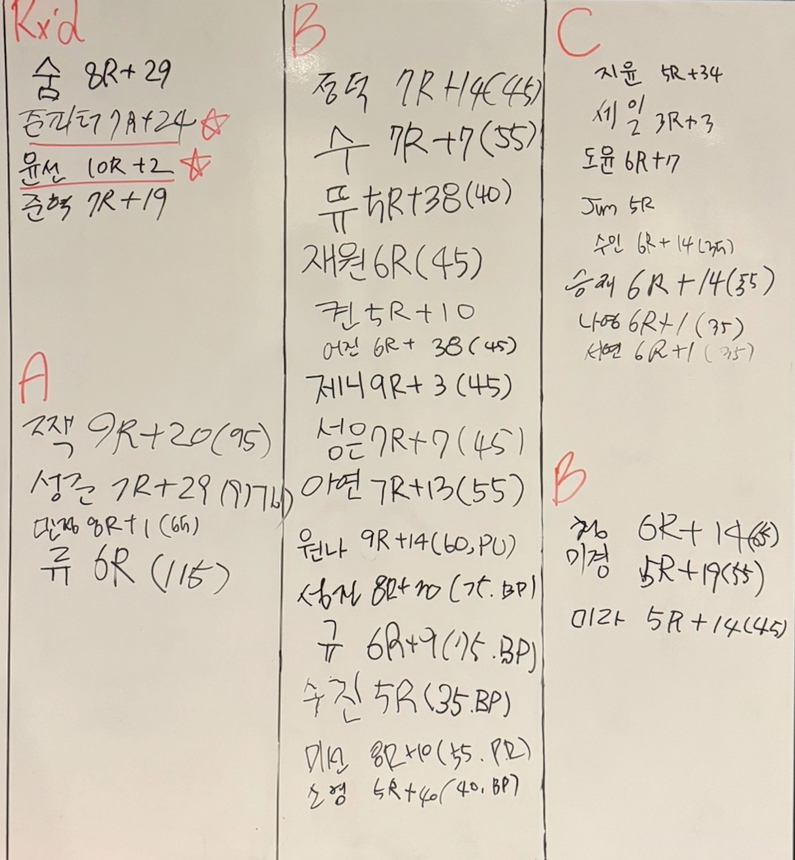 Rx'd
숨 8R+29
존피터 7R+24
윤선 10R+2
준혁 7R+19
A
쪽잭 9R+20(95)
성준 7R+29
민정 8R+1(65)
류 6R (115)
B
정덕 7R+14(45)
수 7R+7(55)
뜌 5R+38(40)
재원 6R(45)
퀸 5R+10
어진 6R+38(45)
제니 9R+3(45)
성은 7R+7(45)
아연 7R+13(55)
원나 9R+14(60, PU)
성진 8R+20(75. BP)
규 6R+9(75.BP)
수진 5R(35.BP)
미선 8R+10(55.
소영 5R+40(40, BP)
C
지윤 5R+34
세일 3R+3
도윤 6R+17
Jum 5R
수인 6R+14(35)
승재 6R+14(55)
나영 6R+1(35)
서연 6R+1(35)
B
6R+14
미경 5R+19(55)
미라 5R+14(45)